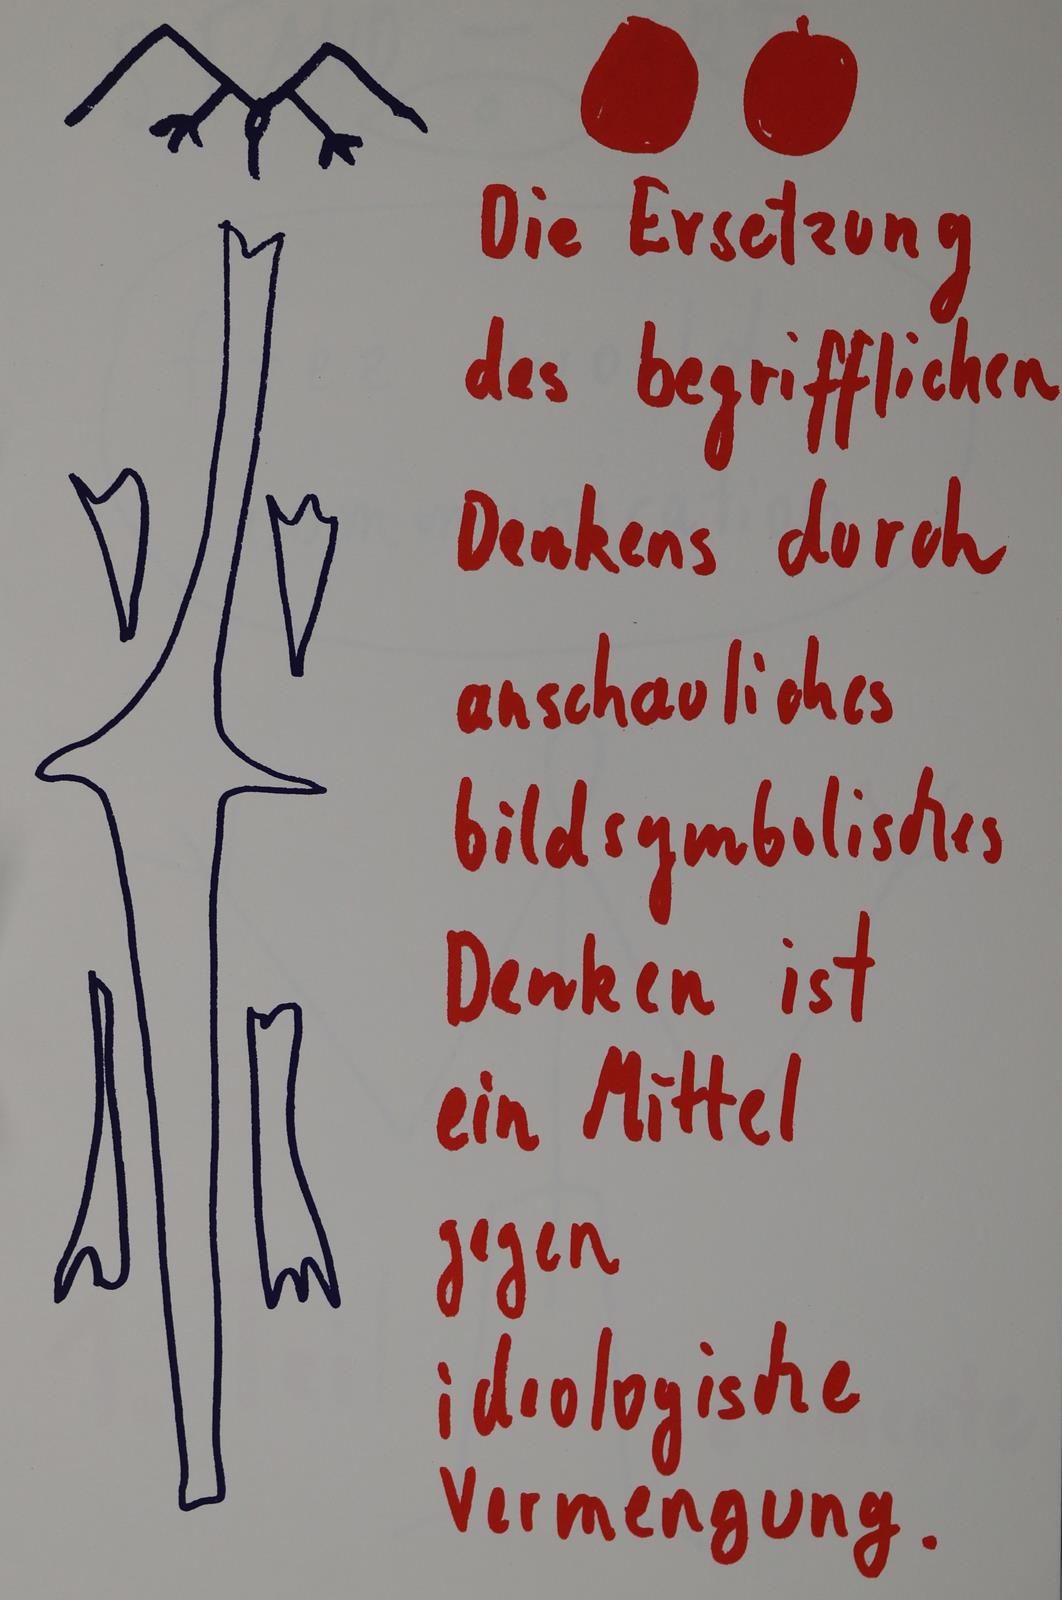 Die Ersetzung
des begrifflichen
Denkens durch
anschauliches
bildsymbolisches
Denken ist
ein Mittel
gegen
ideologische
Vermengung.